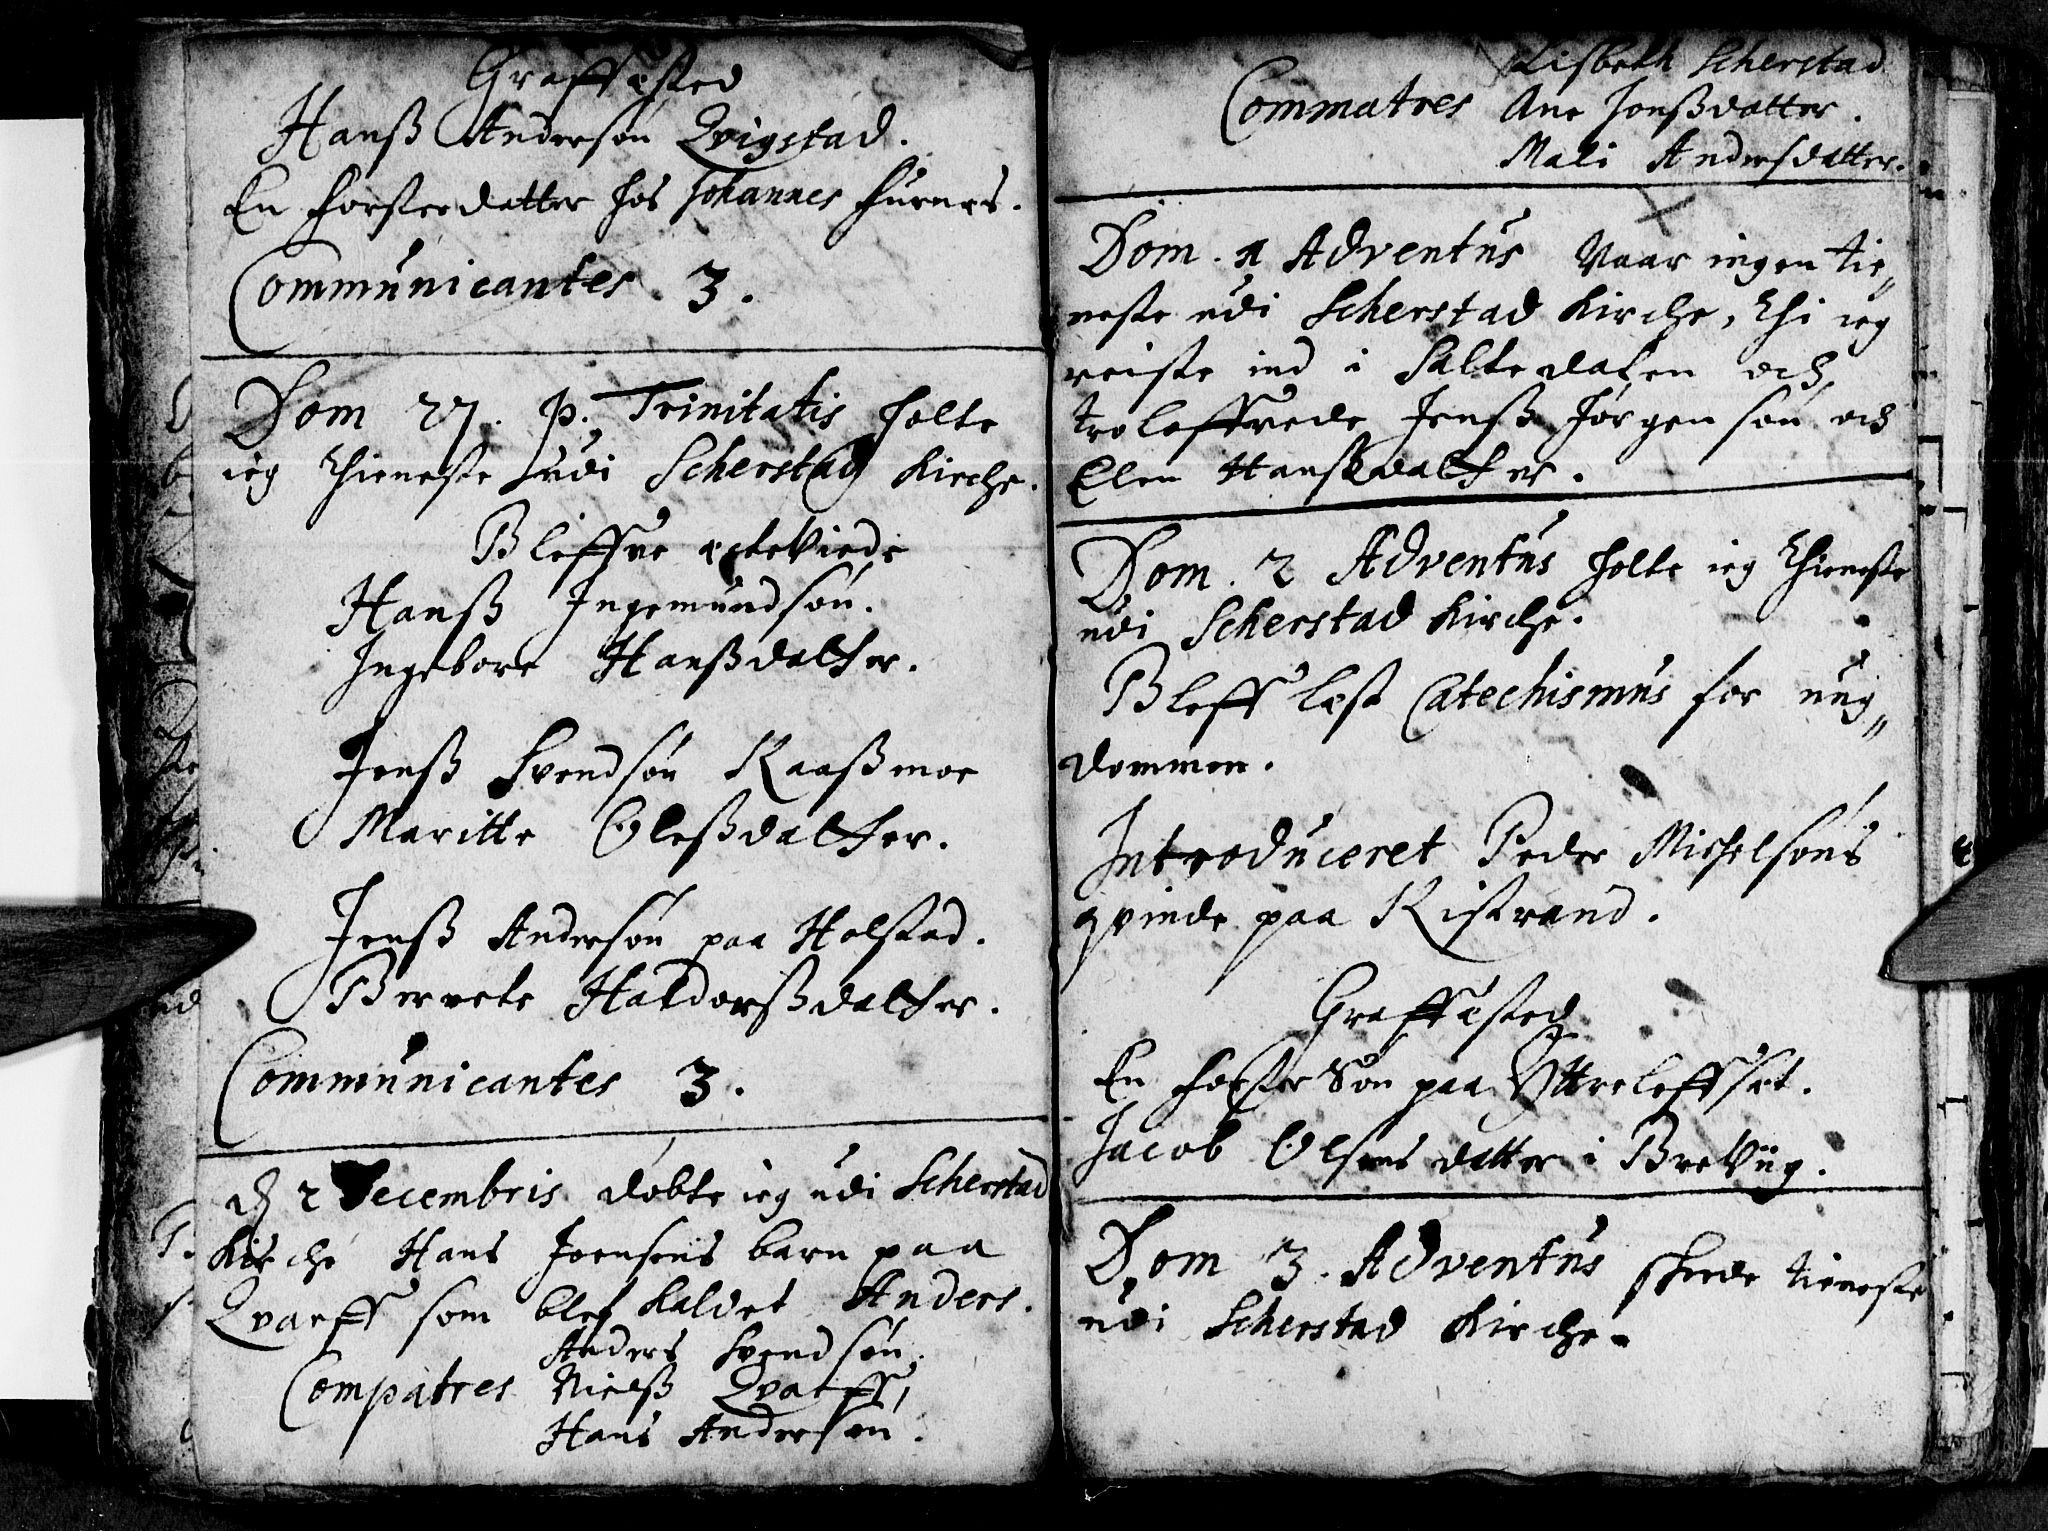 Graffæsted
Hanß Andersøn Qvigstad.
En Fosterdatter hos Johannes Furnes.
Communicantes 3.
Dom 27. p. Trinitatis holte
ieg thieneste udi Scherstad Kirche.
Bleffve ecteviede
Hanß Ingemundsøn.
Ingebore Hanßdatther.
Jenß Svendsøn Kaaßmoe
Maritte Oleßdatther.
Jenß Andersøn paa Halstad.
Bernete Haldorßdatther.
Communicantes 3.
D 2 Decembris døbte ieg udi Scherstad
Kirche Hans Joensens barn paa
Qvarff som blef kaldet Anders.
Anders Svendsøn,
Compatres Nielß Qvarff,
Hans Andersøn.
Lisbeth Scherstad
Commatres Ane Jonßdatter.
Mali Andersdatter.
Dom. 1 Adventus Vaar ingen tie„
neste udi Scherstad Kirche, thi ieg
reiste ind i Saltedalen och
troloffvede Jenß Jørgensøn och
Elen Hanßdatther.
Dom. 2 Adventus holte ieg thieneste
udi Scherstad Kirche.
Bleff læst Catechismus for ung„
dommen.
Introduceret Peder Michelsøns
qvinde paa Ristrand.
Graffæsted
En foster Søn paa Yttreleffset.
Jacob Olsens datter i Breviig.
Dom 3. Adventus skeede tieneste
udi Scherstad Kirche.